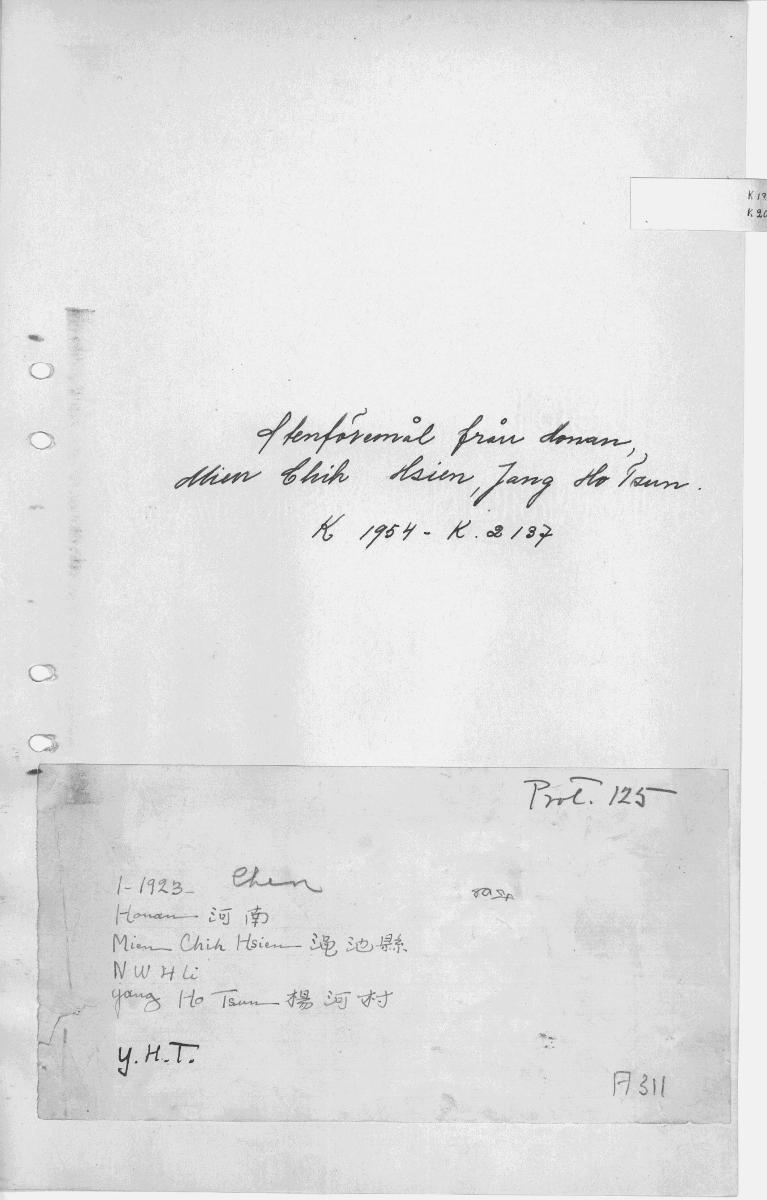 K 19
K 20
Stenföremål från Honan,
Mien Chih Hsien, Jang Ho Tsun.
K 1954 - K. 2137
Prot. 125
1-1923- Chen
Honan 河南
Mien Chih Hsien 渑池縣
N W 4 li
Yang Ho Tsun 楊河村
Y.H.T.
A 311